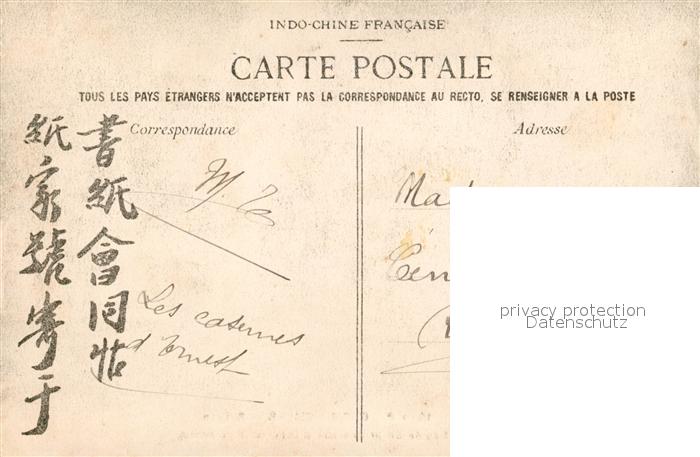 INDO-CHINE FRANÇAISE
CARTE POSTALE
TOUS LES PAYS ÉTRANGERS N'ACCEPTENT PAS LA CORRESPONDANCE AU RECTO, SE RENSEIGNER A LA POSTE
Correspondance
Adresse
書紙會同帖
紙家號寄于
Les casernes
d'Ernest
privacy protection
Datenschutz